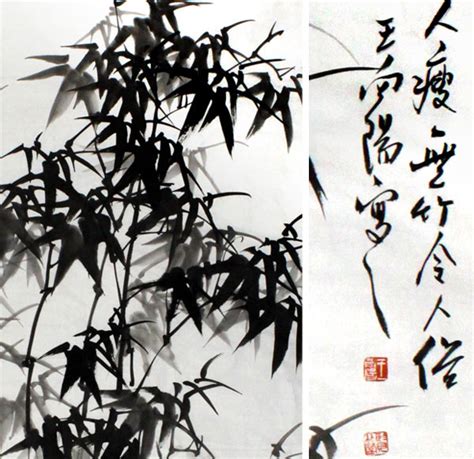 人瘦無竹令人俗
王向陽寫之